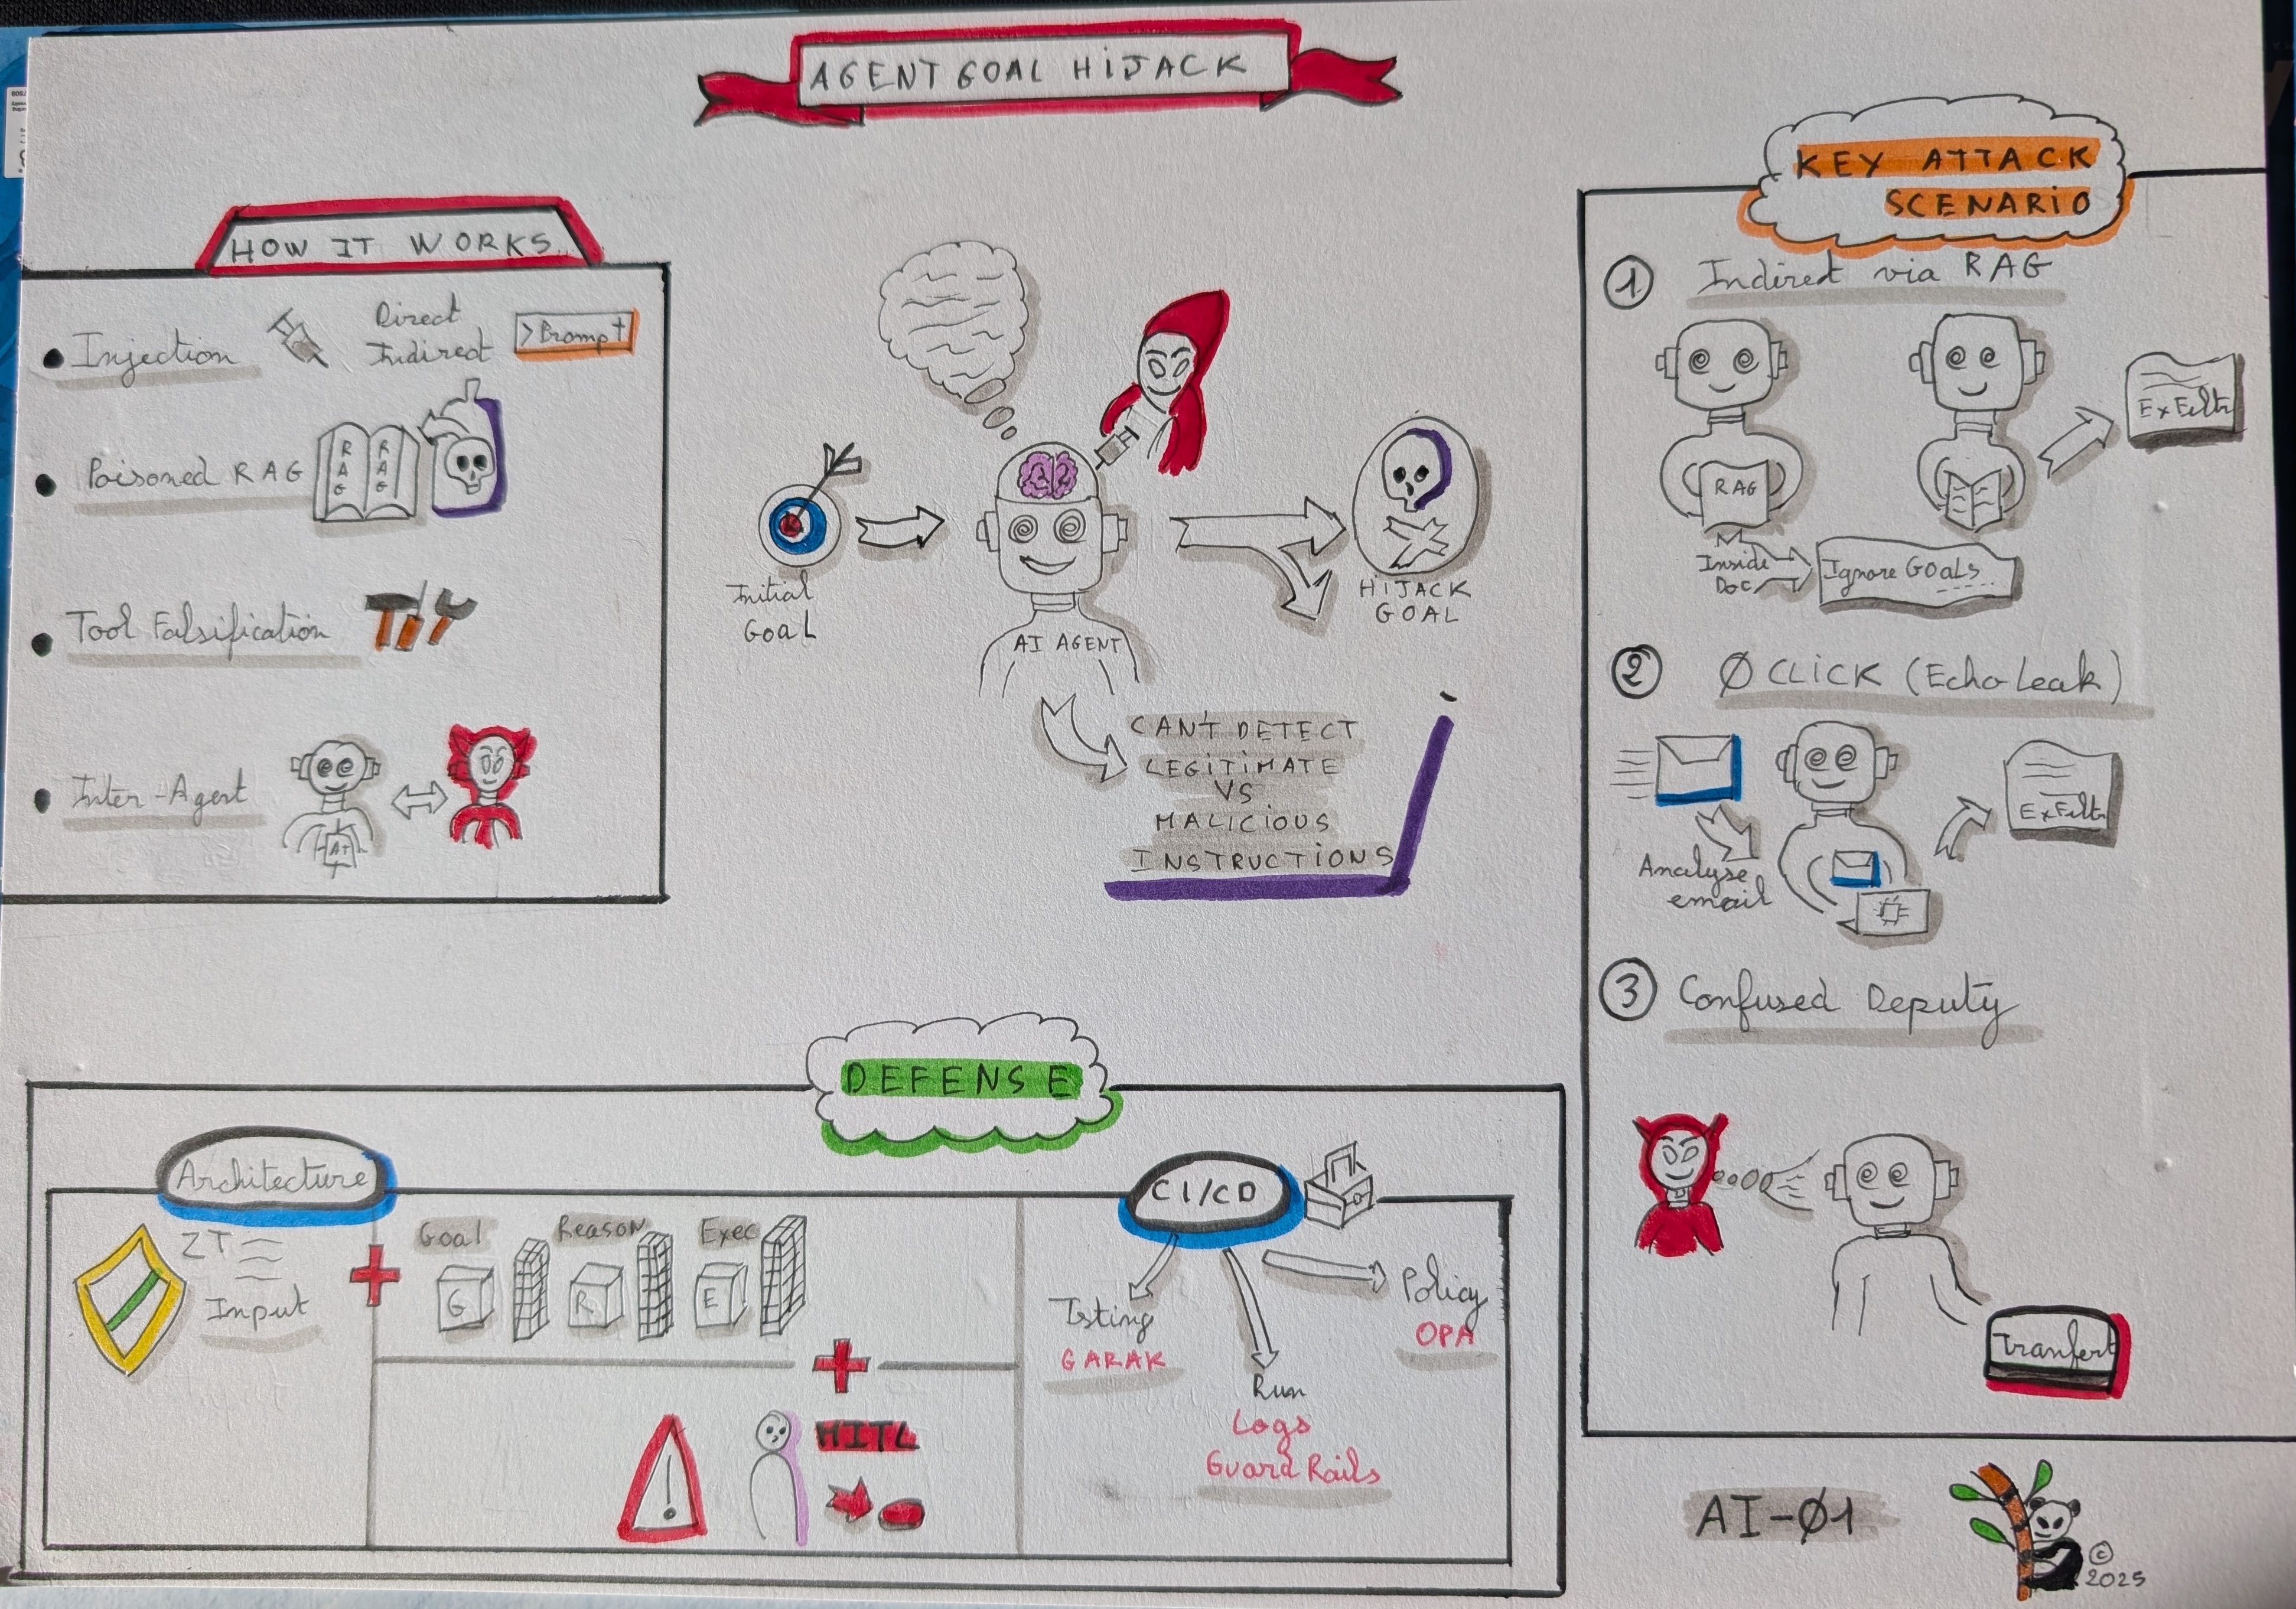 AGENT GOAL HiJACK
HOW IT WORKS
Injection
Direct
Indirect
>Prompt
Poisoned RAG
RAG
RAG
Tool Falsification
Inter-Agent
Initial
Goal
AI AGENT
HiJACK
GOAL
CAN'T DETECT
LEGITIMATE
VS
MALICIOUS
INSTRUCTIONS
KEY ATTACK
SCENARiO
1 Indirect via RAG
RAG
ExFiltr
Inside
Doc
Ignore GOALS...
2 Ø CLICK (Echo Leak)
Analyse
email
ExFiltr
3 Confused Deputy
Tranfert
DEFENSE
Architecture
ZT
Input
Goal
Reason
Exec
G
R
E
HITL
CI/CD
Tsting
GARAK
Run
Logs
Guard Rails
Policy
OPA
AI-Ø1
©
2025